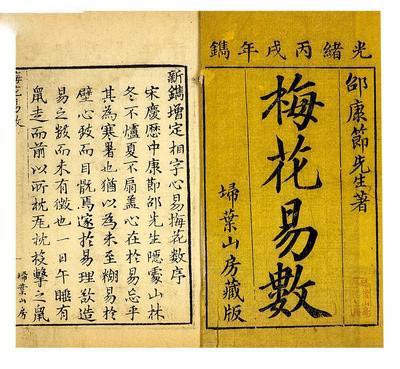 光緒丙戌年鐫
邵康節先生著
梅花易數
埽葉山房藏版
新鐫增定相字心易梅花數序
宋慶曆中康節邵先生隱處山林
冬不爐夏不扇蓋心在於易忘乎
其為寒暑也猶以為未至糊易於
壁心致而目翫焉邃於易理欲造
易之數而未有徵也一日午睡有
鼠走而前以所枕瓦枕投擊之鼠
梅花易數
一
埽葉山房